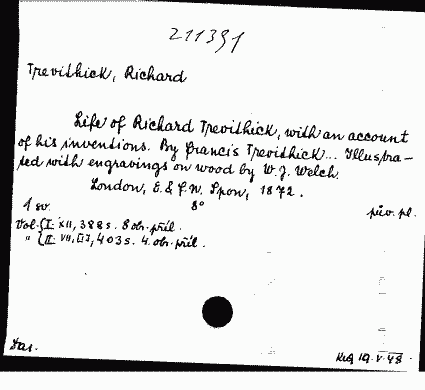 211391
Trevithick, Richard
Life of Richard Trevithick, with an account
of his inventions. By Francis Trevithick... Illustra-
ted with engravings on wood by W. J. Welch.
London, E. & F. N. Spon, 1872.
8°
pův. pl.
Vol. I: XII, 388 s. 8 obr. příl.
" II: VII, [1], 403 s. 4. obr. příl.
Dar.
19.V.48